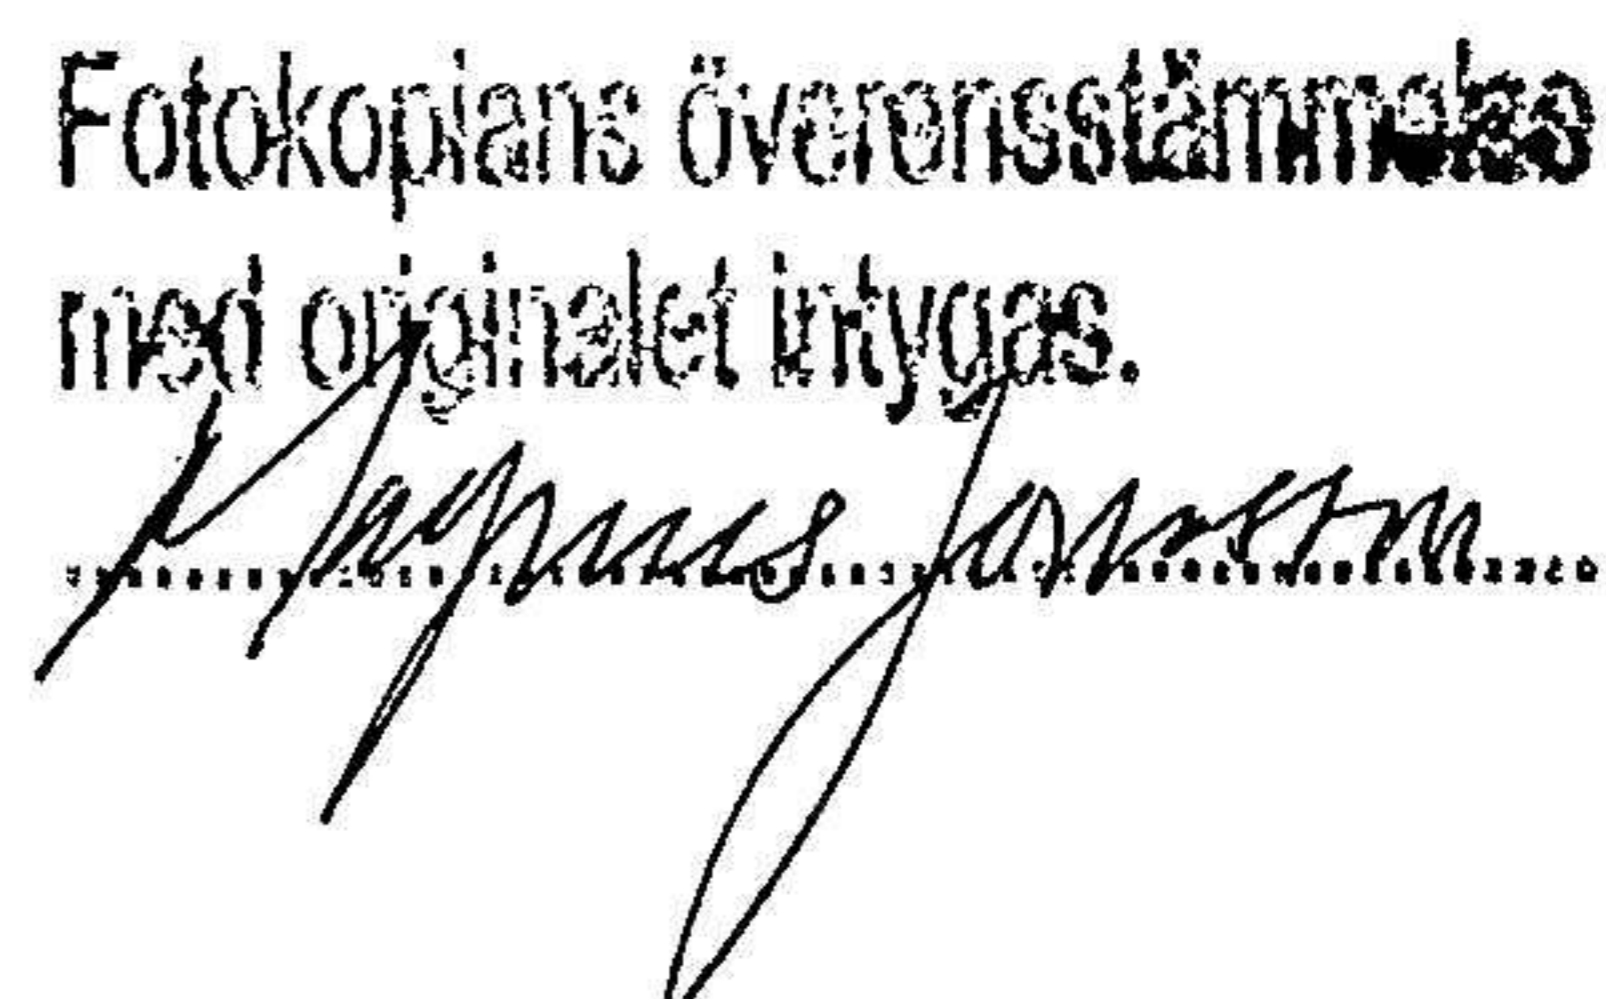 Fotokopians överensstämmelse
med originalet intygas.
Magnus Jonsson